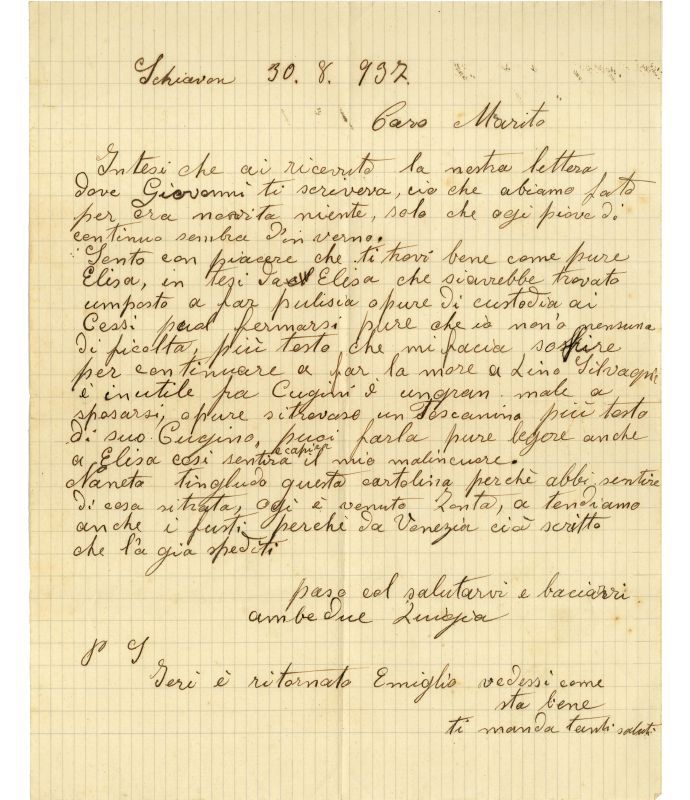 Schiavon 30. 8. 937.
Caro Marito
Intesi che ai ricevuto la nostra lettera
dove Giovanni ti scriveva, cio che abiamo fato
per ora novita niente, solo che ogi piove di
continuo sembra d'in verno.
Sento con piacere che ti trovi bene come pure
Elisa, in tesi da Elisa che siavrebbe trovato
umposto a far pulisia opure di custodia ai
Cessi puol fermarsi pure che io non'o nensuna
di ficolta, più tosto che mi facia sofrire
per continuare a far la more a Lino
è inutile fra Cugini è ungran male a
sposarsi, opure sitrovase un Toscanino più tosto
di suo Cugino, puoi farla pure legere anche
a Elisa cosi sentira e capire il mio malincuore.
Naneta tingludo questa cartolina perchè abbi sentire
di cosa sitrata, ogi è venuto Zonta, a tendiamo
anche i fusti, perchè da Venezia cià scritto
che l'à già spediti
paso col salutarvi e baciarvi
ambedue Luigia
P S
Ieri è ritornato Emiglio vedessi come
sta bene
ti manda tanti saluti